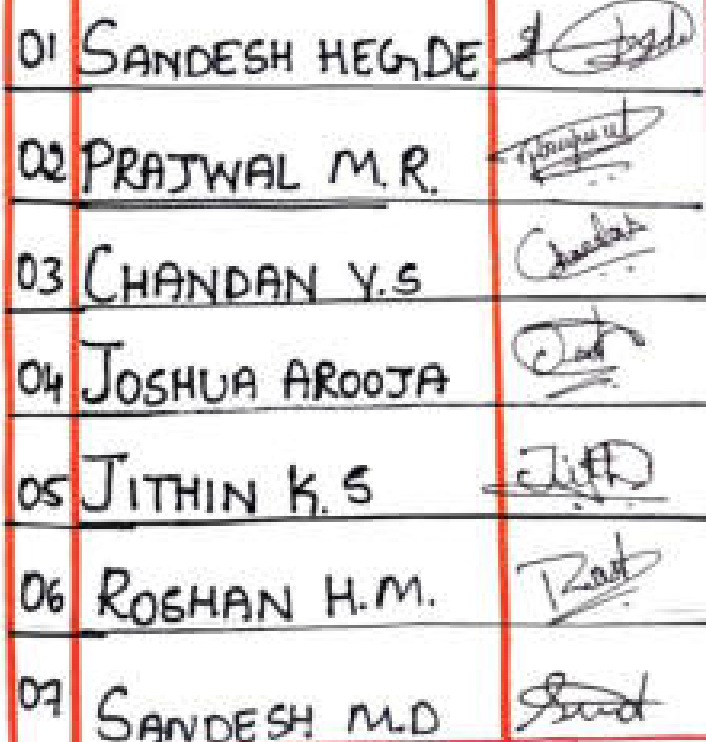 01 SANDESH HEGDE
02 PRAJWAL M.R.
03 CHANDAN Y.S
04 JOSHUA AROOJA
05 JITHIN K.S
06 ROSHAN H.M.
07 SANDESH M.D